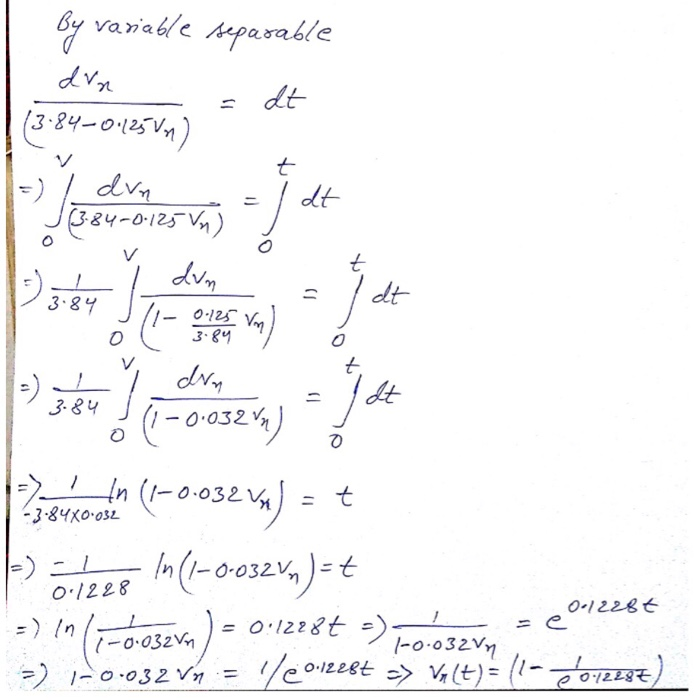 By variable separable
dvx / (3.84-0.125Vx) = dt
=) ∫₀^V dvx / (3.84-0.125Vx) = ∫₀^t dt
=) 1/3.84 ∫₀^V dvx / (1 - 0.125/3.84 Vx) = ∫₀^t dt
=) 1/3.84 ∫₀^V dvx / (1-0.032Vx) = ∫₀^t dt
=) 1/-3.84X0.032 ln (1-0.032Vx) = t
=) -1/0.1228 ln (1-0.032Vx) = t
=) ln (1/1-0.032Vx) = 0.1228t =) 1/1-0.032Vx = e^0.1228t
=) 1-0.032Vx = 1/e^0.1228t => Vx(t) = (1- 1/e^0.1228t)